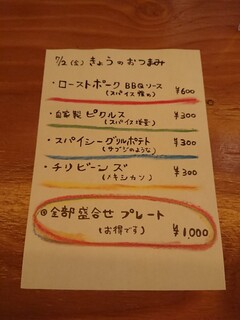 7/2 (金) きょうのおつまみ
・ローストポーク BBQソース ¥600
(スパイス強め)
・自家製 ピクルス ¥300
(スパイス控首)
・スパイシーグリルポテト ¥300
(サブジのような)
・チリビーンズ ¥300
(メキシカン)
◎全部盛合せ プレート
(お得です) ¥1,000